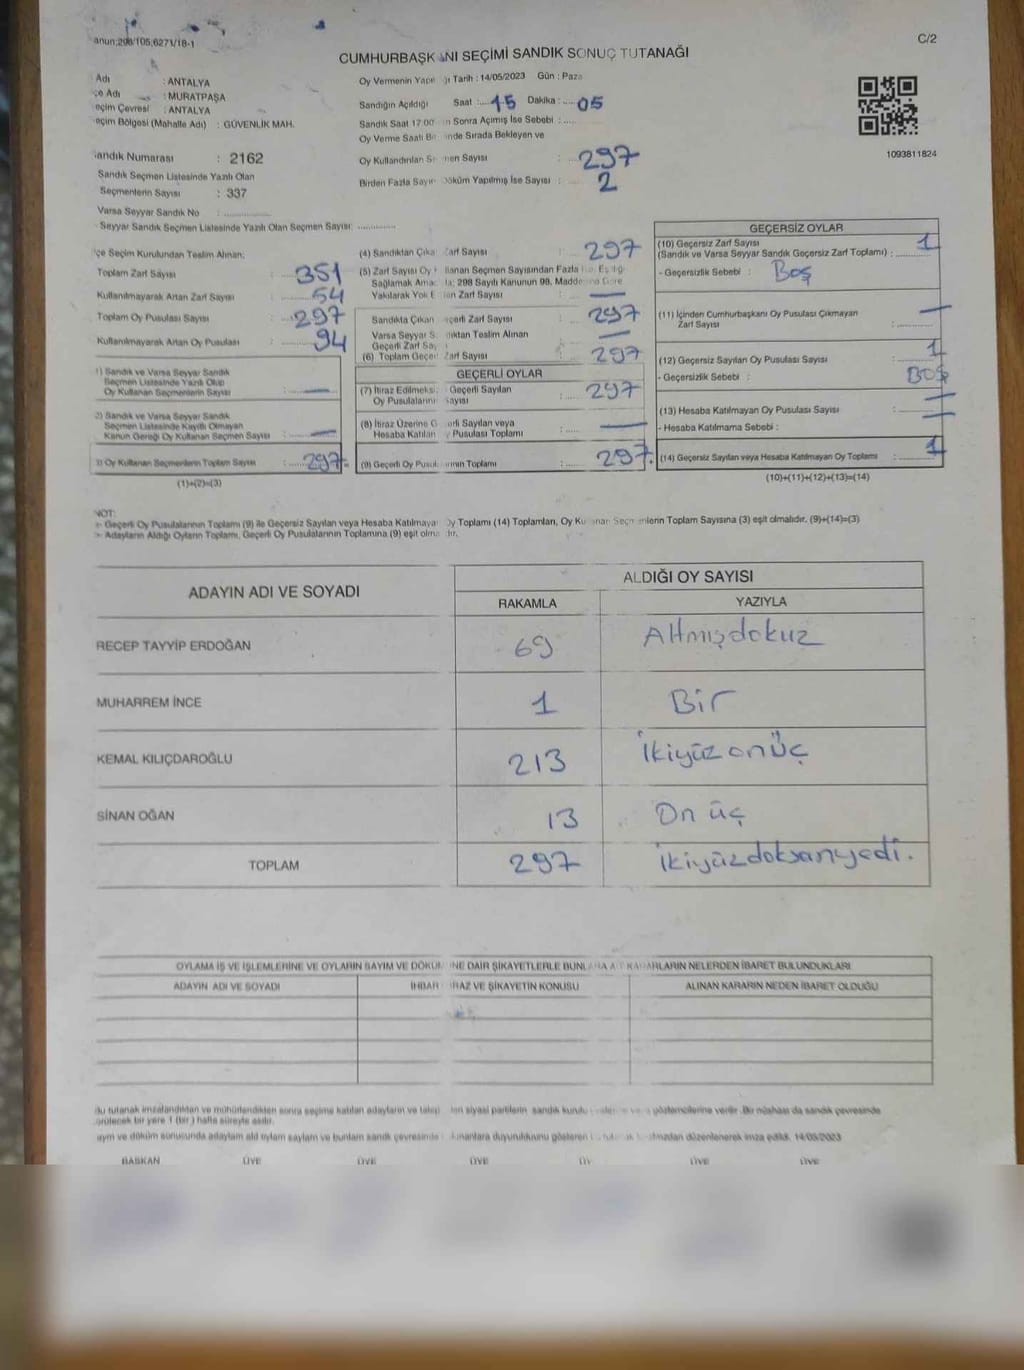 anun:298/105,6271/18-1
C/2
CUMHURBAŞK ANI SEÇİMİ SANDIK SONUÇ TUTANAĞI
Adı : ANTALYA
çe Adı : MURATPAŞA
eçim Çevresi : ANTALYA
eçim Bölgesi (Mahalle Adı) : GÜVENLİK MAH.
Oy Vermenin Yapı ğı Tarih : 14/05/2023 Gün : Paza
Sandığın Açıldığı Saat : 15 Dakika : 05
Sandık Saat 17:00 n Sonra Açımış İse Sebebi :
Oy Verme Saati Bi nde Sırada Bekleyen ve
Oy Kullandırılan Se men Sayısı : 297
Birden Fazla Sayım Döküm Yapılmış İse Sayısı : 2
1093811824
andık Numarası : 2162
Sandık Seçmen Listesinde Yazılı Olan
Seçmenlerin Sayısı : 337
Varsa Seyyar Sandık No :
Seyyar Sandık Seçmen Listesinde Yazılı Olan Seçmen Sayısı:
çe Seçim Kurulundan Teslim Alınan;
Toplam Zarf Sayısı : 351
Kullanılmayarak Artan Zarf Sayısı : 54
Toplam Oy Pusulası Sayısı : 297
Kullanılmayarak Artan Oy Pusulası : 94
1) Sandık ve Varsa Seyyar Sandık
Seçmen Listesinde Yazılı Olup
Oy Kullanan Seçmenlerin Sayısı : —
2) Sandık ve Varsa Seyyar Sandık
Seçmen Listesinde Kayıtlı Olmayan
Kanun Gereği Oy Kullanan Seçmen Sayısı : —
3) Oy Kullanan Seçmenlerin Toplam Sayısı : 297
(1)+(2)=(3)
(4) Sandıktan Çıka Zarf Sayısı : 297
(5) Zarf Sayısı Oy llanan Seçmen Sayısından Fazla
Sağlamak Ama 298 Sayılı Kanunun 98. Madde Göre
Yakılarak Yok E en Zarf Sayısı —
Sandıkta Çıkan eçerli Zarf Sayısı : 297
Varsa Seyyar S dıktan Teslim Alınan
Geçerli Zarf Say —
(6) Toplam Geçer Zarf Sayısı : 297
GEÇERLİ OYLAR
(7) İtiraz Edilmeksi Geçerli Sayılan
Oy Pusulalarını Sayısı : 297
(8) İtiraz Üzerine G erli Sayılan veya
Hesaba Katılan y Pusulası Toplamı : —
(9) Geçerli Oy Pusul rının Toplamı : 297.
GEÇERSİZ OYLAR
(10) Geçersiz Zarf Sayısı
(Sandık ve Varsa Seyyar Sandık Geçersiz Zarf Toplamı) : 1
- Geçersizlik Sebebi : Boş
(11) İçinden Cumhurbaşkanı Oy Pusulası Çıkmayan
Zarf Sayısı : —
(12) Geçersiz Sayılan Oy Pusulası Sayısı : 1
- Geçersizlik Sebebi : BOŞ
(13) Hesaba Katılmayan Oy Pusulası Sayısı : —
- Hesaba Katılmama Sebebi : —
(14) Geçersiz Sayılan veya Hesaba Katılmayan Oy Toplamı : 1
(10)+(11)+(12)+(13)=(14)
NOT:
- Geçerli Oy Pusulalarının Toplamı (9) ile Geçersiz Sayılan veya Hesaba Katılmaya Oy Toplamı (14) Toplamları, Oy Ku anan Seçmenlerin Toplam Sayısına (3) eşit olmalıdır. (9)+(14)=(3)
- Adayların Aldığı Oyların Toplamı, Geçerli Oy Pusulalarının Toplamına (9) eşit olma dır.
ADAYIN ADI VE SOYADI
ALDIĞI OY SAYISI
RAKAMLA YAZIYLA
RECEP TAYYİP ERDOĞAN 69 Altmışdokuz
MUHARREM İNCE 1 Bir
KEMAL KILIÇDAROĞLU 213 İkiyüz onüç
SİNAN OĞAN 13 On üç
TOPLAM 297 İkiyüzdoksanyedi.
OYLAMA İŞ VE İŞLEMLERİNE VE OYLARIN SAYIM VE DÖKÜM NE DAİR ŞİKAYETLERLE BUNLARA AİT KARARLARIN NELERDEN İBARET BULUNDUKLARI
ADAYIN ADI VE SOYADI İHBAR İRAZ VE ŞİKAYETİN KONUSU ALINAN KARARIN NEDEN İBARET OLDUĞU
Bu tutanak imzalandıktan ve mühürlendikten sonra seçime katılan adayların ve siyasi partilerin sandık kurulu gözlemcilerine verilir. Bir nüshası da sandık çevresinde
görülecek bir yere 1 (bir) hafta süreyle asılır.
düzenlenerek imza edildi. 14/05/2023
BAŞKAN ÜYE ÜYE ÜYE ÜY ÜYE ÜYE